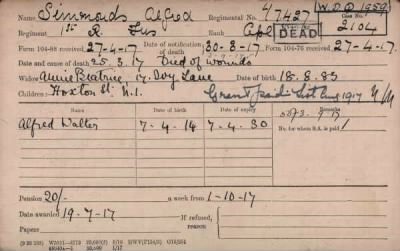 Name Simmonds Alfred Regimental No. 47427 W.O.P. 1959
Regiment 1st R. Fus Rank Cpl DEAD Case No. 2104
Form 104-88 received 27-4-17 Date of notification of death 30-3-17 Form 104-76 received 27-4-17.
Date and cause of death 25.3.17 Died of wounds
Widow Annie Beatrice, 17. Ivy Lane Date of birth 18.8.83
Children: Hoxton St. N.1. Grant paid List Aug 1917
Date of birth Date of expiry Remarks
Alfred Walter 7-4-14 7-4-30
No. for whom S.A. is paid 1
Pension 20/- a week from 1-10-17
Date awarded 19-7-17 If refused, reason
Papers